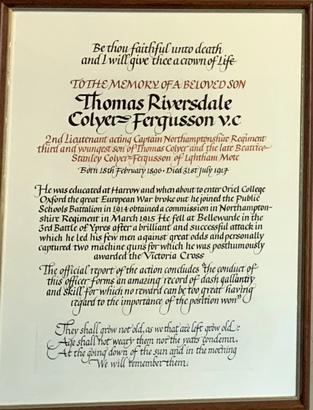 Be thou faithful unto death
and I will give thee a crown of Life
TO THE MEMORY OF A BELOVED SON
Thomas Riversdale
Colyer=Fergusson v.c
2nd Lieutenant acting Captain Northamptonshire Regiment
third and youngest son of Thomas Colyer and the late Beatrice
Stanley Colyer=Fergusson of Ightham Mote
Born 18th February 1896 · Died 31st July 1917
He was educated at Harrow and when about to enter Oriel College
Oxford the great European War broke out he joined the Public
Schools Battalion in 1914 obtained a commission in Northampton-
shire Regiment in March 1915 He fell at Bellewarde in the
3rd Battle of Ypres after a brilliant and successful attack in
which he led his few men against great odds and personally
captured two machine guns for which he was posthumously
awarded the Victoria Cross
The official report of the action concludes "the conduct of
this officer forms an amazing record of dash gallantry
and skill for which no reward can be too great having
regard to the importance of the position won"
They shall grow not old, as we that are left grow old:
Age shall not weary them nor the years condemn.
At the going down of the sun and in the morning
We will remember them.